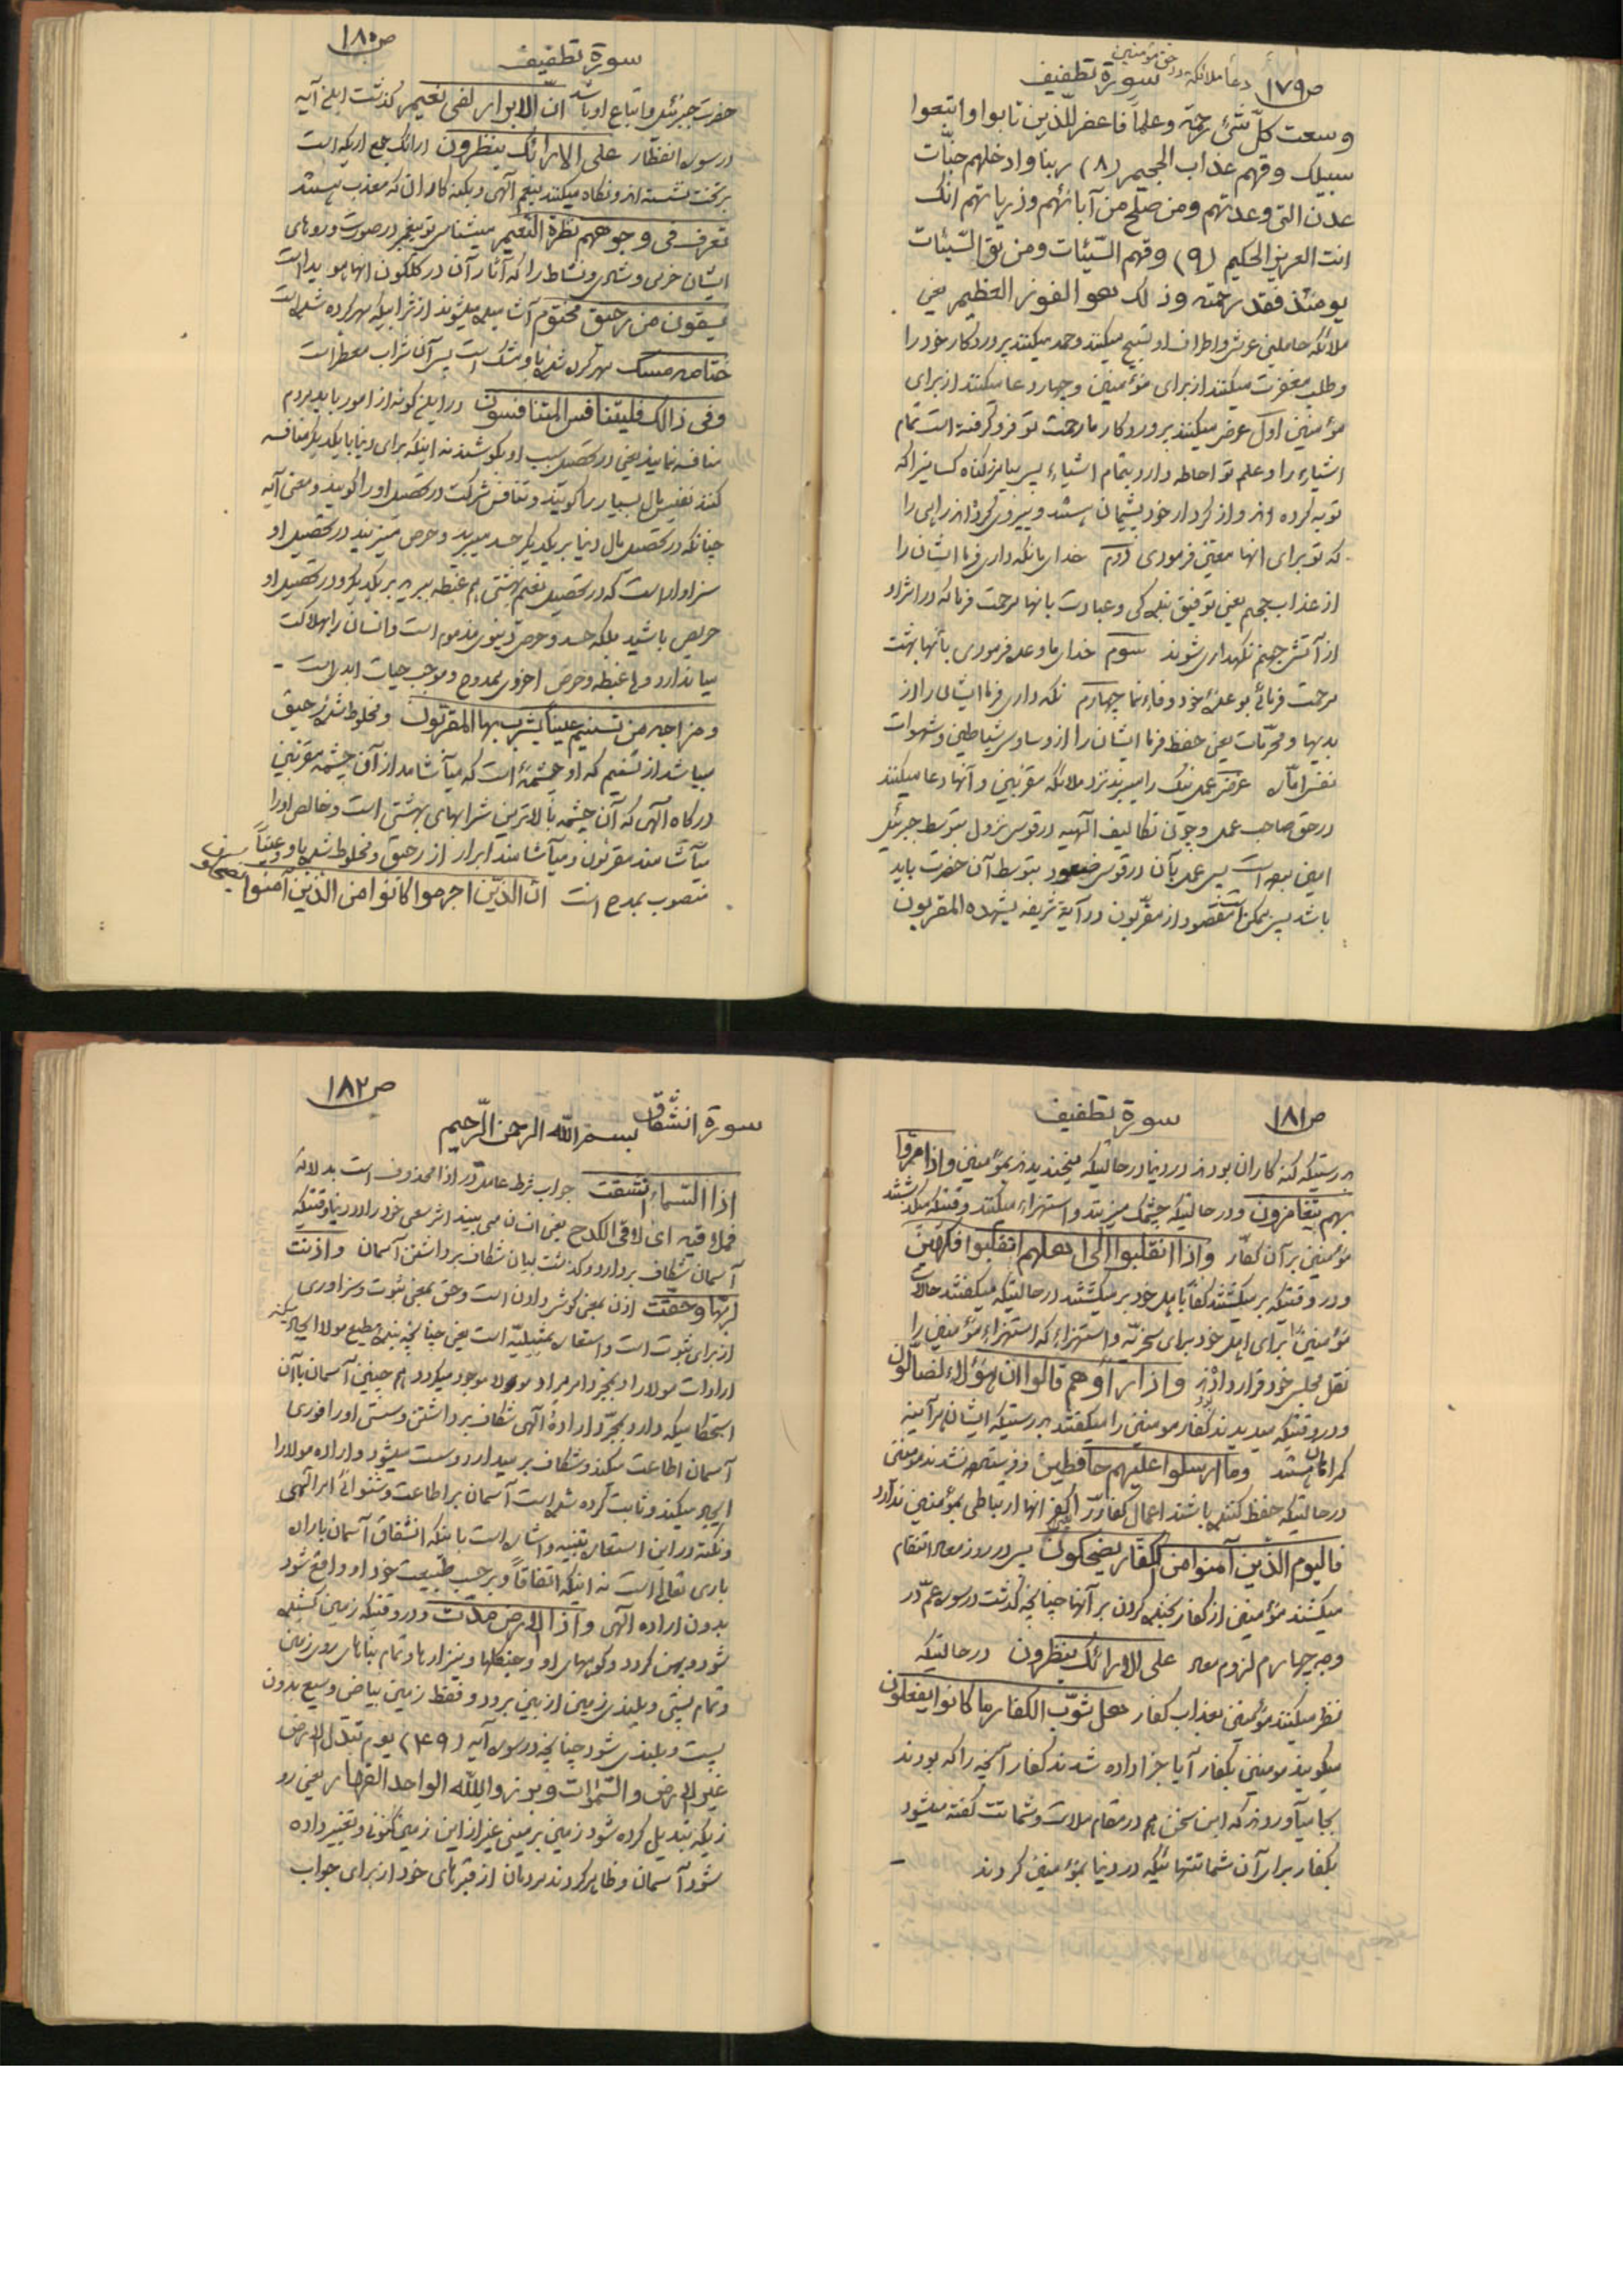 ص۱۷۹ دعاء ملائکه در حق مؤمنین سورة تطفیف
وسعت کلّ شیء رحمة وعلماً فاغفر للّذین تابوا واتبعوا
سبیلک وقهم عذاب الجحیم (۸) ربنا وادخلهم جنّات
عدن التی وعدتهم ومن صلح من آبائهم وذریاتهم انّک
انت العزیز الحکیم (۹) وقهم السّیّئات ومن تق السّیّئات
یومئذ فقد رحمته وذلک هو الفوز العظیم یعنی
ملائکه حاملین عرش واطراف او تسبیح میکنند وحمد میکنند پروردکار خود را
وطلب مغفرت میکنند از برای مؤمنین وچهار دعا میکنند از برای
مؤمنین اول عرض میکنند پروردکار ما رحمت تو فرو کرفته است تمام
اشیاء را وعلم تو احاطه دارد بتمام اشیاء پس بیامرز کناه کسانیرا که
توبه کرده اند واز کردار خود پشیمان هستند وپیروی کرده اند راهی را
که تو برای انها معیّن فرمودی دوم خدای ما نکه داری فرما ایشان را
از عذاب جحیم یعنی توفیق بندکی وعبادت بانها مرحمت فرما که در اثر او
از آتش جهنم نکهداری شوند سوم خدای ما وعده فرمودی بآنها بهشت
مرحمت فرمائی بوعدهٔ خود وفاء نما چهارم نکه داری فرما ایشان را از
بدیها ومحرّمات یعنی حفظ فرما ایشان را از وساوس شیاطین وشهوات
نفس امّاره غرض عمل نیک را میبرند نزد ملائکه مقرّبین وآنها دعا میکنند
در حق صاحب عمل وچون تکالیف الهیه در قوس نزول بتوسط جبرئیل
امین بوده است پس عمل بآن در قوس صعود بتوسط آن حضرت باید
باشد پس ممکن است مقصود از مقرّبون در آیهٔ شریفه یشهده المقربون
ص۱۸۰ سورة تطفیف
حضرت جبرئیل واتباع او باشد انّ الابرار لفی نعیم کذشت این آیه
در سوره انفطار علی الارائک ینظرون ارائک جمع اریکه است
بر تخت نشسته اند ونکاه میکنند بنعم آلهی وبکنه کاران که معذب هستند
تعرف فی وجوههم نضرة النّعیم میشناسی تو پیغمبر در صورت وروهای
ایشان خرمی وشادی ونشاط را که آثار آن در کلکون انها هویدا است
یسقون من رحیق مختوم آشامیده میشوند از شرابیکه مهر کرده شده است
ختامه مسک مهر کرده شده باو مشک است پس آن شراب معطر است
وفی ذالک فلیتنافس المتنافسون در این کونه از امور باید مردم
منافسه نمایند یعنی در تحصیل سبب او بکوشند نه اینکه برای دنیا با یکدیکر منافسه
کنند نفیس مال بسیار را کویند وتنافس شرکت در تحصیل او را کویند ومعنی آیه
چنانکه در تحصیل مال دنیا بر یکدیکر حسد میبرید وحرص میزنید در تحصیل او
سزاوار است که در تحصیل نعیم بهشتی هم غبطه ببرید بر یکدیکر ودر تحصیل او
حریص باشید بلکه حسد وحرص دنیوی مذموم است وانسان را بهلاکت
میاندازد ولی غبطه وحرص اخروی ممدوح وموجب حیات ابدی است -
ومزاجه من تسنیم عیناً یشرب بها المقرّبون ومخلوط شده رحیق
میباشد از تسنیم که او چشمهٔ است که میآشامد از آن چشمه مقرّبین
درکاه آلهی که آن چشمه بالاترین شرابهای بهشتی است وخالص او را
میآشامند مقرّبون ومیآشامند ابرار از رحیق ومخلوط شده باو وعیناً
منصوب بمدح است انّ الذّین اجرموا کانوا من الذّین آمنوا یضحکون
ص۱۸۱ سورة تطفیف
بدرستیکه کنه کاران بودند در دنیا در حالتیکه میخندیدند بمؤمنین واذا مرّوا
بهم یتغامزون ودر حالتیکه چشمک میزنند واستهزاء میکنند وقتیکه میکذشتند
مؤمنین بر آن کفّار واذا انقلبوا الی اهلهم انقلبوا فکهین
ودر وقتیکه بر میکشتند کفار باهل خود بر میکشتند در حالتیکه میکفتند حالات
مؤمنین را برای اهل خود برای سخریّه واستهزاء که استهزاء مؤمنین را
نقل مجلس خود قرار دادند واذا رأوهم قالوا انّ هؤلاء لضالّون
ودر وقتیکه میدیدند کفار مومنین را میکفتند بدرستیکه ایشان هر آینه
کمراهان هستند وما ارسلوا علیهم حافظین وفرستاده نشدند مومنین
در حالتیکه حفظ کننده باشند اعمال کفار را کفر انها ارتباطی بمؤمنین ندارد
فالیوم الذّین آمنوا من الکفّار یضحکون پس در روز معاد انتقام
میکشند مؤمنین از کفار بخنده کردن بر آنها چنانچه کذشت در سوره عمّ در
وجه چهارم لزوم معاد علی الارائک ینظرون در حالتیکه
نظر میکنند مؤمنین بعذاب کفار هل ثوّب الکفار ما کانوا یفعلون
میکویند مومنین بکفار آیا جزا داده شدند کفار آنچه را که بودند
بجا میآوردند که این سخن هم در مقام ملامت وشماتت کفته میشود
بکفار برابر آن شماتتهائیکه در دنیا بمؤمنین کردند -
ص۱۸۲
سورة انشقاق بسم الله الرحمن الرّحیم
اذا السّماء انشقت جواب شرط عامل در اذا محذوف است بدلاله
فملاقیه ای لاقی الکدح یعنی انسان می بیند اثر سعی خود را در دنیا وقتیکه
آسمان شکاف بردارد وکذشت بیان شکاف برداشتن آسمان واذنت
لربّها وحقّت اذن بمعنی کوش دادن است وحق بمعنی ثبوت وسزاوری
از برای ثبوت است واستعاره تمثیلیّه است یعنی چنانچه بندهٔ مطیع مولا ایجاد میکند
ارادات مولا را وبمجرد امر مراد مولا موجود میکردد هم چنین آسمان با آن
استحکامیکه دارد بمجرّد ارادهٔ آلهی شکاف برداشتن وسستی او را فوری
آسمان اطاعت میکند وشکاف بر میدارد وسست میشود واراده مولا را
ایجاد میکند وثابت کرده شده است آسمان بر اطاعت وشنوائی امر آلهی
ونکته در این استعاره تنبیه واشاره است باینکه انشقاق آسمان باراده
باری تعالی است نه اینکه اتفاقاً وبر حسب طبیعت خود او واقع شود
بدون اراده آلهی واذا الارض مدّت ودر وقتیکه زمین کشیده
شود وپهن کردد وکوههای او وجنکلها ونیزارها وتمام بناهای روی زمین
وتمام پستی وبلندی زمین از بین برود وفقط زمین بیاض وسیع بدون
پست وبلندی شود چنانچه در سوره آیه (۴۹) یوم تبدّل الارض
غیر الارض والسّموات وبرزوا لله الواحد القهار یعنی رو
زیکه تبدیل کرده شود زمین بزمینی غیر از این زمین کنونی وتغییر داده
شود آسمان وظاهر کردند مردمان از قبرهای خود از برای جواب